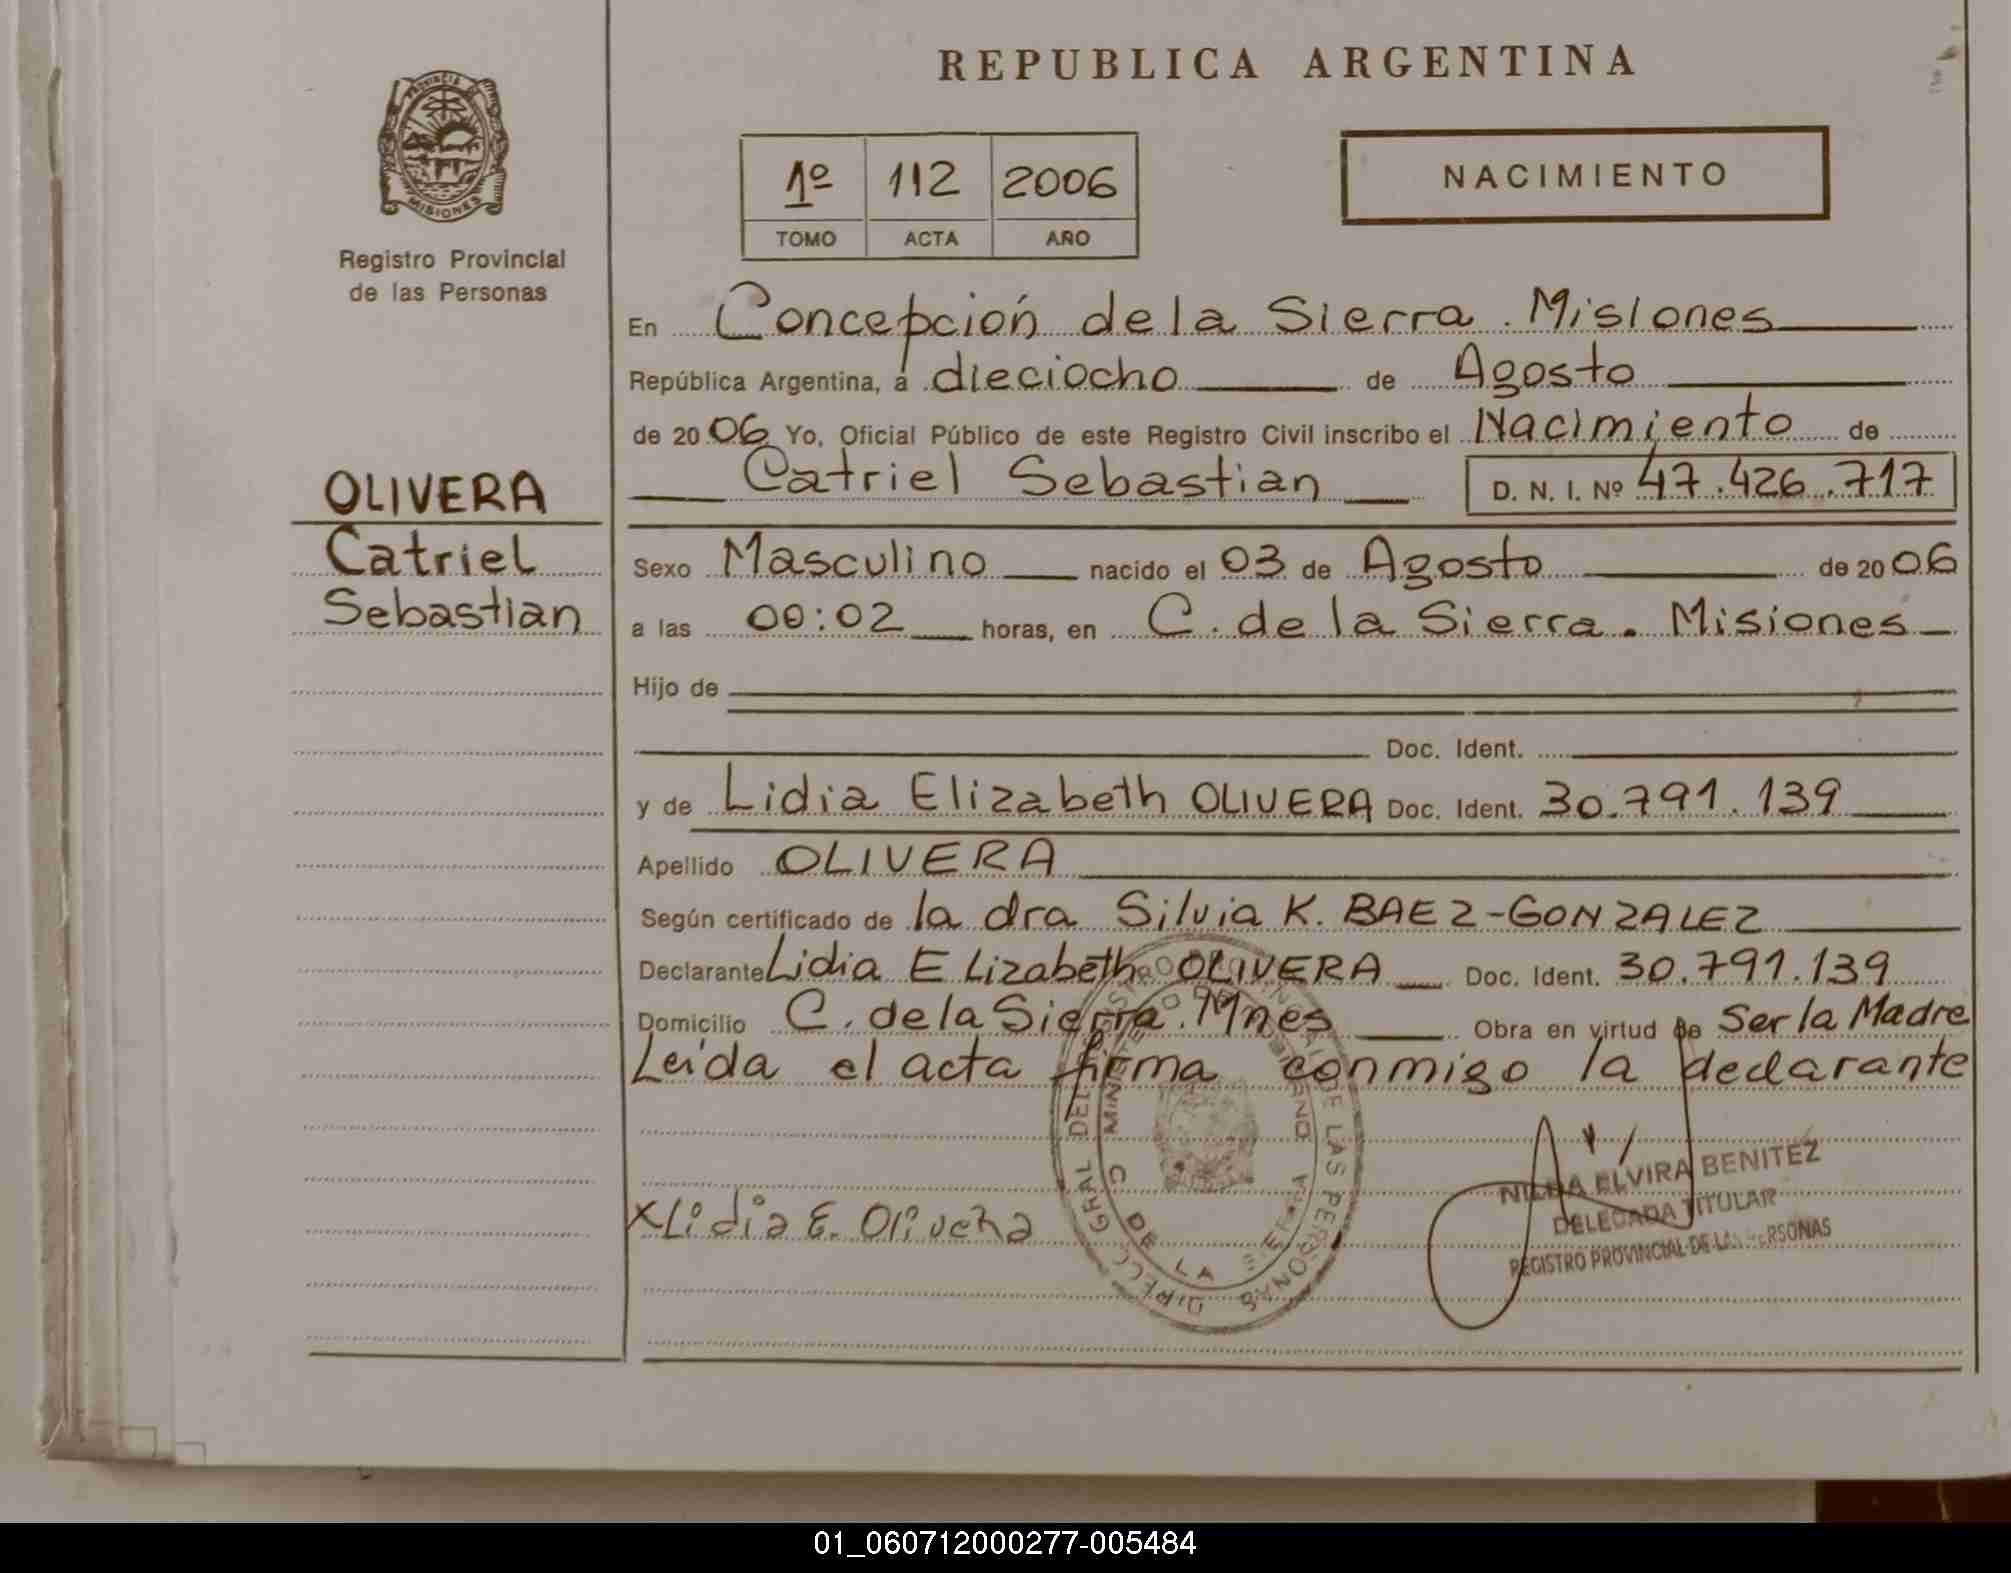 REPUBLICA ARGENTINA
PROVINCIA DE
MISIONES
Registro Provincial
de las Personas
1º 112 2006
TOMO ACTA AÑO
NACIMIENTO
En Concepción de la Sierra. Misiones
República Argentina, a dieciocho de Agosto
de 2006 Yo, Oficial Público de este Registro Civil inscribo el Nacimiento de
Catriel Sebastian D. N. I. Nº 47.426.717
OLIVERA
Catriel
Sebastian
Sexo Masculino nacido el 03 de Agosto de 2006
a las 00:02 horas, en C. de la Sierra. Misiones
Hijo de
Doc. Ident.
y de Lidia Elizabeth OLIVERA Doc. Ident. 30.791.139
Apellido OLIVERA
Según certificado de la dra Silvia K. BAEZ-GONZALEZ
Declarante Lidia Elizabeth OLIVERA Doc. Ident. 30.791.139
Domicilio C. de la Sierra. Mnes Obra en virtud de Ser la Madre
Leída el acta firma conmigo la declarante
X Lidia E. Olivera
ELVIRA BENITEZ
DELEGADA TITULAR
REGISTRO PROVINCIAL DE LAS PERSONAS
01_060712000277-005484